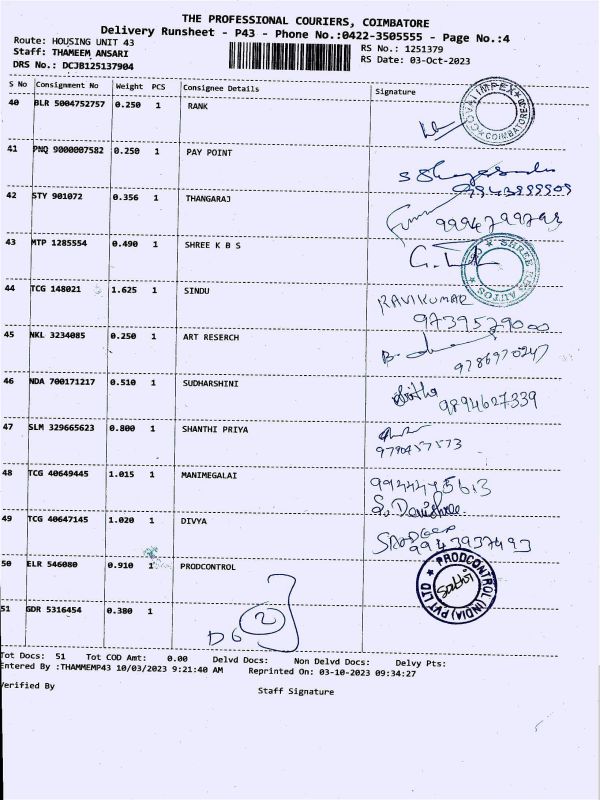 THE PROFESSIONAL COURIERS, COIMBATORE
Delivery Runsheet - P43 - Phone No.:0422-3505555 - Page No.:4
Route: HOUSING UNIT 43
RS No.: 1251379
Staff: THAMEEM ANSARI
RS Date: 03-Oct-2023
DRS No.: DCJB125137904
S No Consignment No Weight PCS Consignee Details Signature
40 BLR 5004752757 0.250 1 RANK
IMPEX COIMBATORE
41 PNQ 9000007582 0.250 1 PAY POINT
42 STY 901072 0.356 1 THANGARAJ
43 MTP 1285554 0.490 1 SHREE K B S
SHREE KBS AUTOS
44 TCG 148021 1.625 1 SINDU
RAVIKUMAR
9739579000
45 NKL 3234085 0.250 1 ART RESERCH
9786970247
46 NDA 700171217 0.510 1 SUDHARSHINI
9894627339
47 SLM 329665623 0.800 1 SHANTHI PRIYA
9790457573
48 TCG 40649445 1.015 1 MANIMEGALAI
49 TCG 40647145 1.020 1 DIVYA
9943937493
50 ELR 546080 0.910 1 PRODCONTROL
PRODCONTROL (INDIA) PVT LTD
51 GDR 5316454 0.380 1
D6 2
Tot Docs: 51 Tot COD Amt: 0.00 Delvd Docs: Non Delvd Docs: Delvy Pts:
Entered By :THAMMEMP43 10/03/2023 9:21:40 AM Reprinted On: 03-10-2023 09:34:27
Verified By
Staff Signature